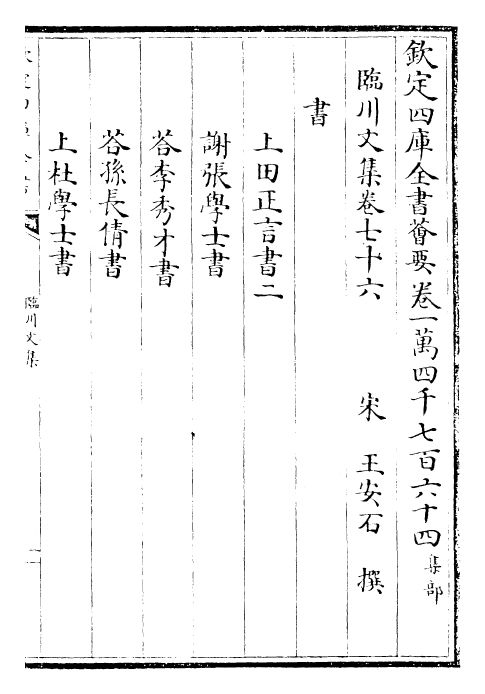 欽定四庫全書薈要卷一萬四千七百六十四 集部
臨川文集卷七十六 宋 王安石 撰
書
上田正言書二
謝張學士書
答李秀才書
答孫長倩書
上杜學士書
臨川文集